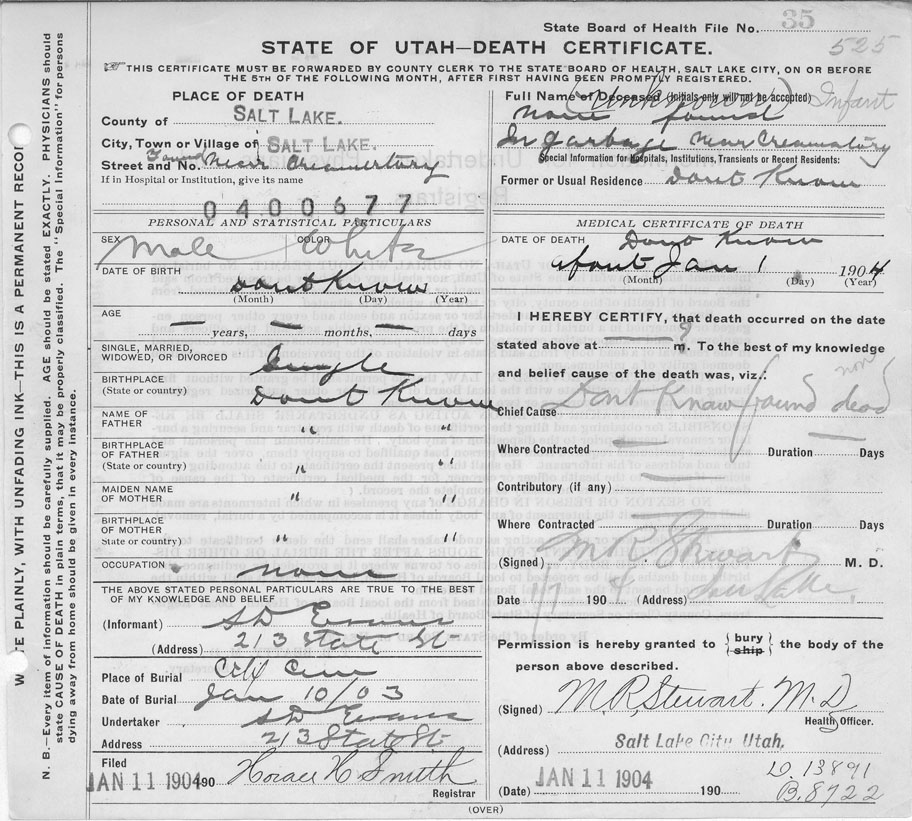 State Board of Health File No. 35
525
STATE OF UTAH—DEATH CERTIFICATE.
THIS CERTIFICATE MUST BE FORWARDED BY COUNTY CLERK TO THE STATE BOARD OF HEALTH, SALT LAKE CITY, ON OR BEFORE
THE 5TH OF THE FOLLOWING MONTH, AFTER FIRST HAVING BEEN PROMPTLY REGISTERED.
PLACE OF DEATH
County of SALT LAKE.
City, Town or Village of SALT LAKE.
Street and No. Found Near Crematory
If in Hospital or Institution, give its name
0400677
PERSONAL AND STATISTICAL PARTICULARS
SEX Male COLOR White
DATE OF BIRTH Dont Know
(Month) (Day) (Year)
AGE — years, — months, — days
SINGLE, MARRIED,
WIDOWED, OR DIVORCED Single
BIRTHPLACE
(State or country) Dont Know
NAME OF
FATHER " "
BIRTHPLACE
OF FATHER
(State or country) " "
MAIDEN NAME
OF MOTHER " "
BIRTHPLACE
OF MOTHER
State or country) " "
OCCUPATION none
THE ABOVE STATED PERSONAL PARTICULARS ARE TRUE TO THE BEST
OF MY KNOWLEDGE AND BELIEF
(Informant) S D Evans
(Address) 213 State St
Place of Burial City Cem
Date of Burial Jan 10/03
Undertaker S D Evans
Address 213 State St
Filed
JAN 11 1904 190 Horace H Smith
Registrar
(OVER)
Full Name of Deceased (Initials only will not be accepted) (Unknown) Infant
None found
In Garbage Near Creamatory
Special Information for Hospitals, Institutions, Transients or Recent Residents:
Former or Usual Residence Dont Know
MEDICAL CERTIFICATE OF DEATH
DATE OF DEATH Dont Know
About Jan 1 1904
(Month) (Day) (Year)
I HEREBY CERTIFY, that death occurred on the date
stated above at — ? m. To the best of my knowledge
and belief cause of the death was, viz.:
Chief Cause Dont Know found dead
Where Contracted — Duration — Days
Contributory (if any) —
Where Contracted — Duration Days
(Signed) M R Stewart M. D.
Date 1904 (Address) Salt Lake.
Permission is hereby granted to { bury ship } the body of the
person above described.
(Signed) M. R. Stewart. M. D
Health Officer.
(Address) Salt Lake City Utah.
D. 13891
B. 8722
(Date) JAN 11 1904 190
WRITE PLAINLY, WITH UNFADING INK—THIS IS A PERMANENT RECOR
N. B.—Every item of information should be carefully supplied. AGE should be stated EXACTLY. PHYSICIANS should
state CAUSE OF DEATH in plain terms, that it may be properly classified. The "Special Information" for persons
dying away from home should be given in every instance.